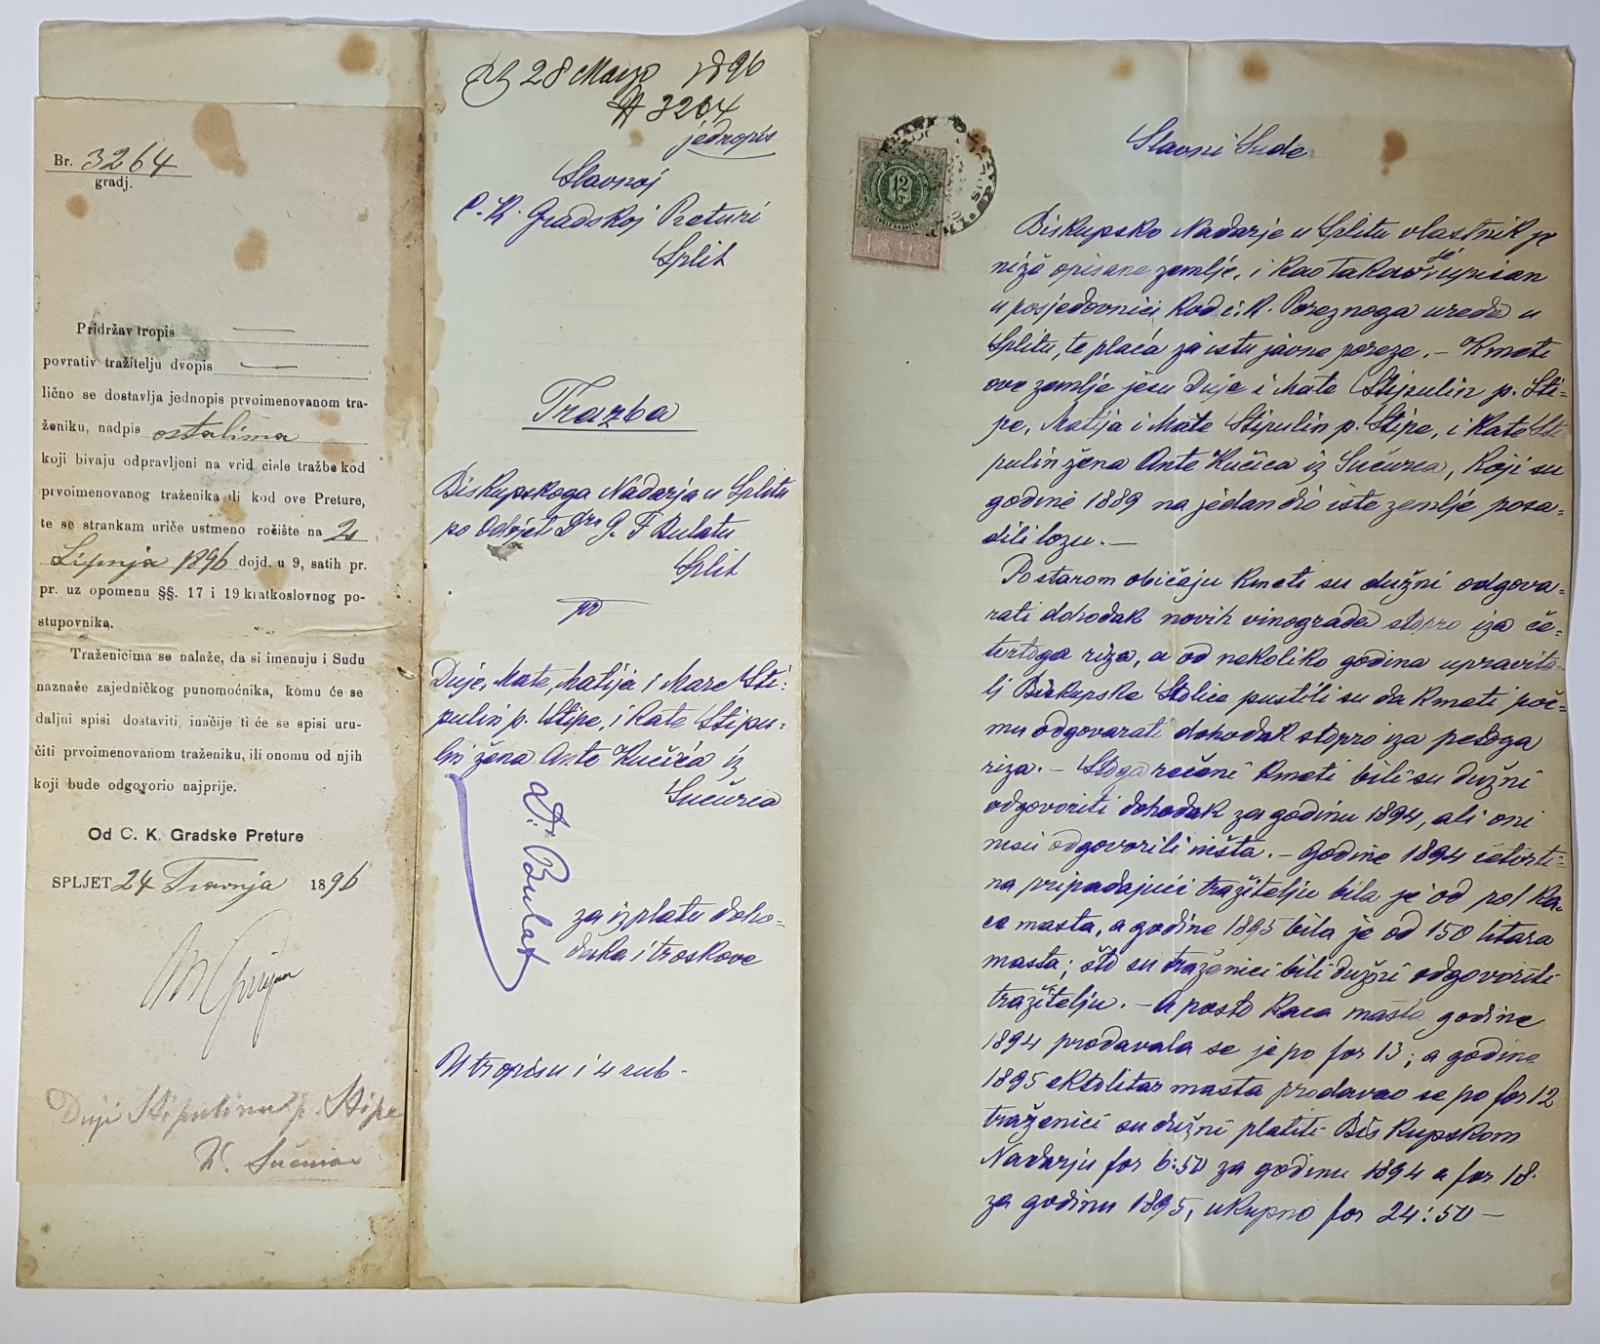 Br. 3264
gradj.
Pridržav tropis
povrativ tražitelju dvopis
lično se dostavlja jednopis prvoimenovanom tra-
ženiku, nadpis ostalima
koji bivaju odpravljeni na vrid ciele tražbe kod
prvoimenovanog traženika ili kod ove Preture,
te se strankam uriče ustmeno ročište na 2
Lipnja 1896 dojd. u 9, satih pr.
pr. uz opomenu §§. 17 i 19 kratkoslovnog po-
stupovnika.
Traženicima se nalaže, da si imenuju i Sudu
naznače zajedničkog punomoćnika, komu će se
daljni spisi dostaviti, inačije ti će se spisi uru-
čiti prvoimenovanom traženiku, ili onomu od njih
koji bude odgovorio najprije.
Od C. K. Gradske Preture
SPLJET 24 Travnja 1896
Duji Stipulinu p. Stipe
28 Marzo 1896
3264
jednopis
Slavnoj
C. K. Gradskoj Preturi
Split
Tražba
Biskupskoga Nadarja u Splitu
po Odvjet. Dru G. F. Bulatu
Split
pr
Duje, Mate, Matija i Mare Sti-
pulin p. Stipe, i Kate Stipu-
lin žena Ante Kučića iz
Sućurca
Dr. Bulat
za izplatu doho-
daka i troškova
U tropisu i 4 rub.
12
1893
Slavni Sude
Biskupsko Nadarje u Splitu vlastnik je
niže opisane zemlje, i kao takov je upisan
u posjedovnici kod c. K. Poreznoga ureda u
Splitu, te plaća za istu javne poreze. - Kmeti
ove zemlje jesu Duje i Mate Stipulin p. Sti-
pe, Matija i Mate Stipulin p. Stipe, i Kate Sti-
pulin žena Ante Kučića iz Sućurca, koji su
godine 1889 na jedan dio iste zemlje posa-
dili lozu. -
Po starom običaju kmeti su dužni odgova-
rati dohodak novih vinograda stopro iza če-
tvrtoga riza, a od nekoliko godina upravite-
lj Biskupske Stolice pustili su da kmeti poč-
mu odgovarati dohodak stopro iza petoga
riza. - Stoga rečeni kmeti bili su dužni
odgovoriti dohodak za godinu 1894, ali oni
nisu odgovorili ništa. - Godine 1894 četvrti-
na pripadajući tražitelju bila je od pol ka-
ca masta, a godine 1895 bila je od 150 litara
masta; što su traženici bili dužni odgovoriti
tražitelju. - A pošto kaca masta godine
1894 prodavala se je po for 13; a godine
1895 ektolitar masta prodavao se po for 12
traženici su dužni platiti Biskupskom
Nadarju for 6:50 za godinu 1894 a for 18.
za godinu 1895, ukupno for 24:50 -